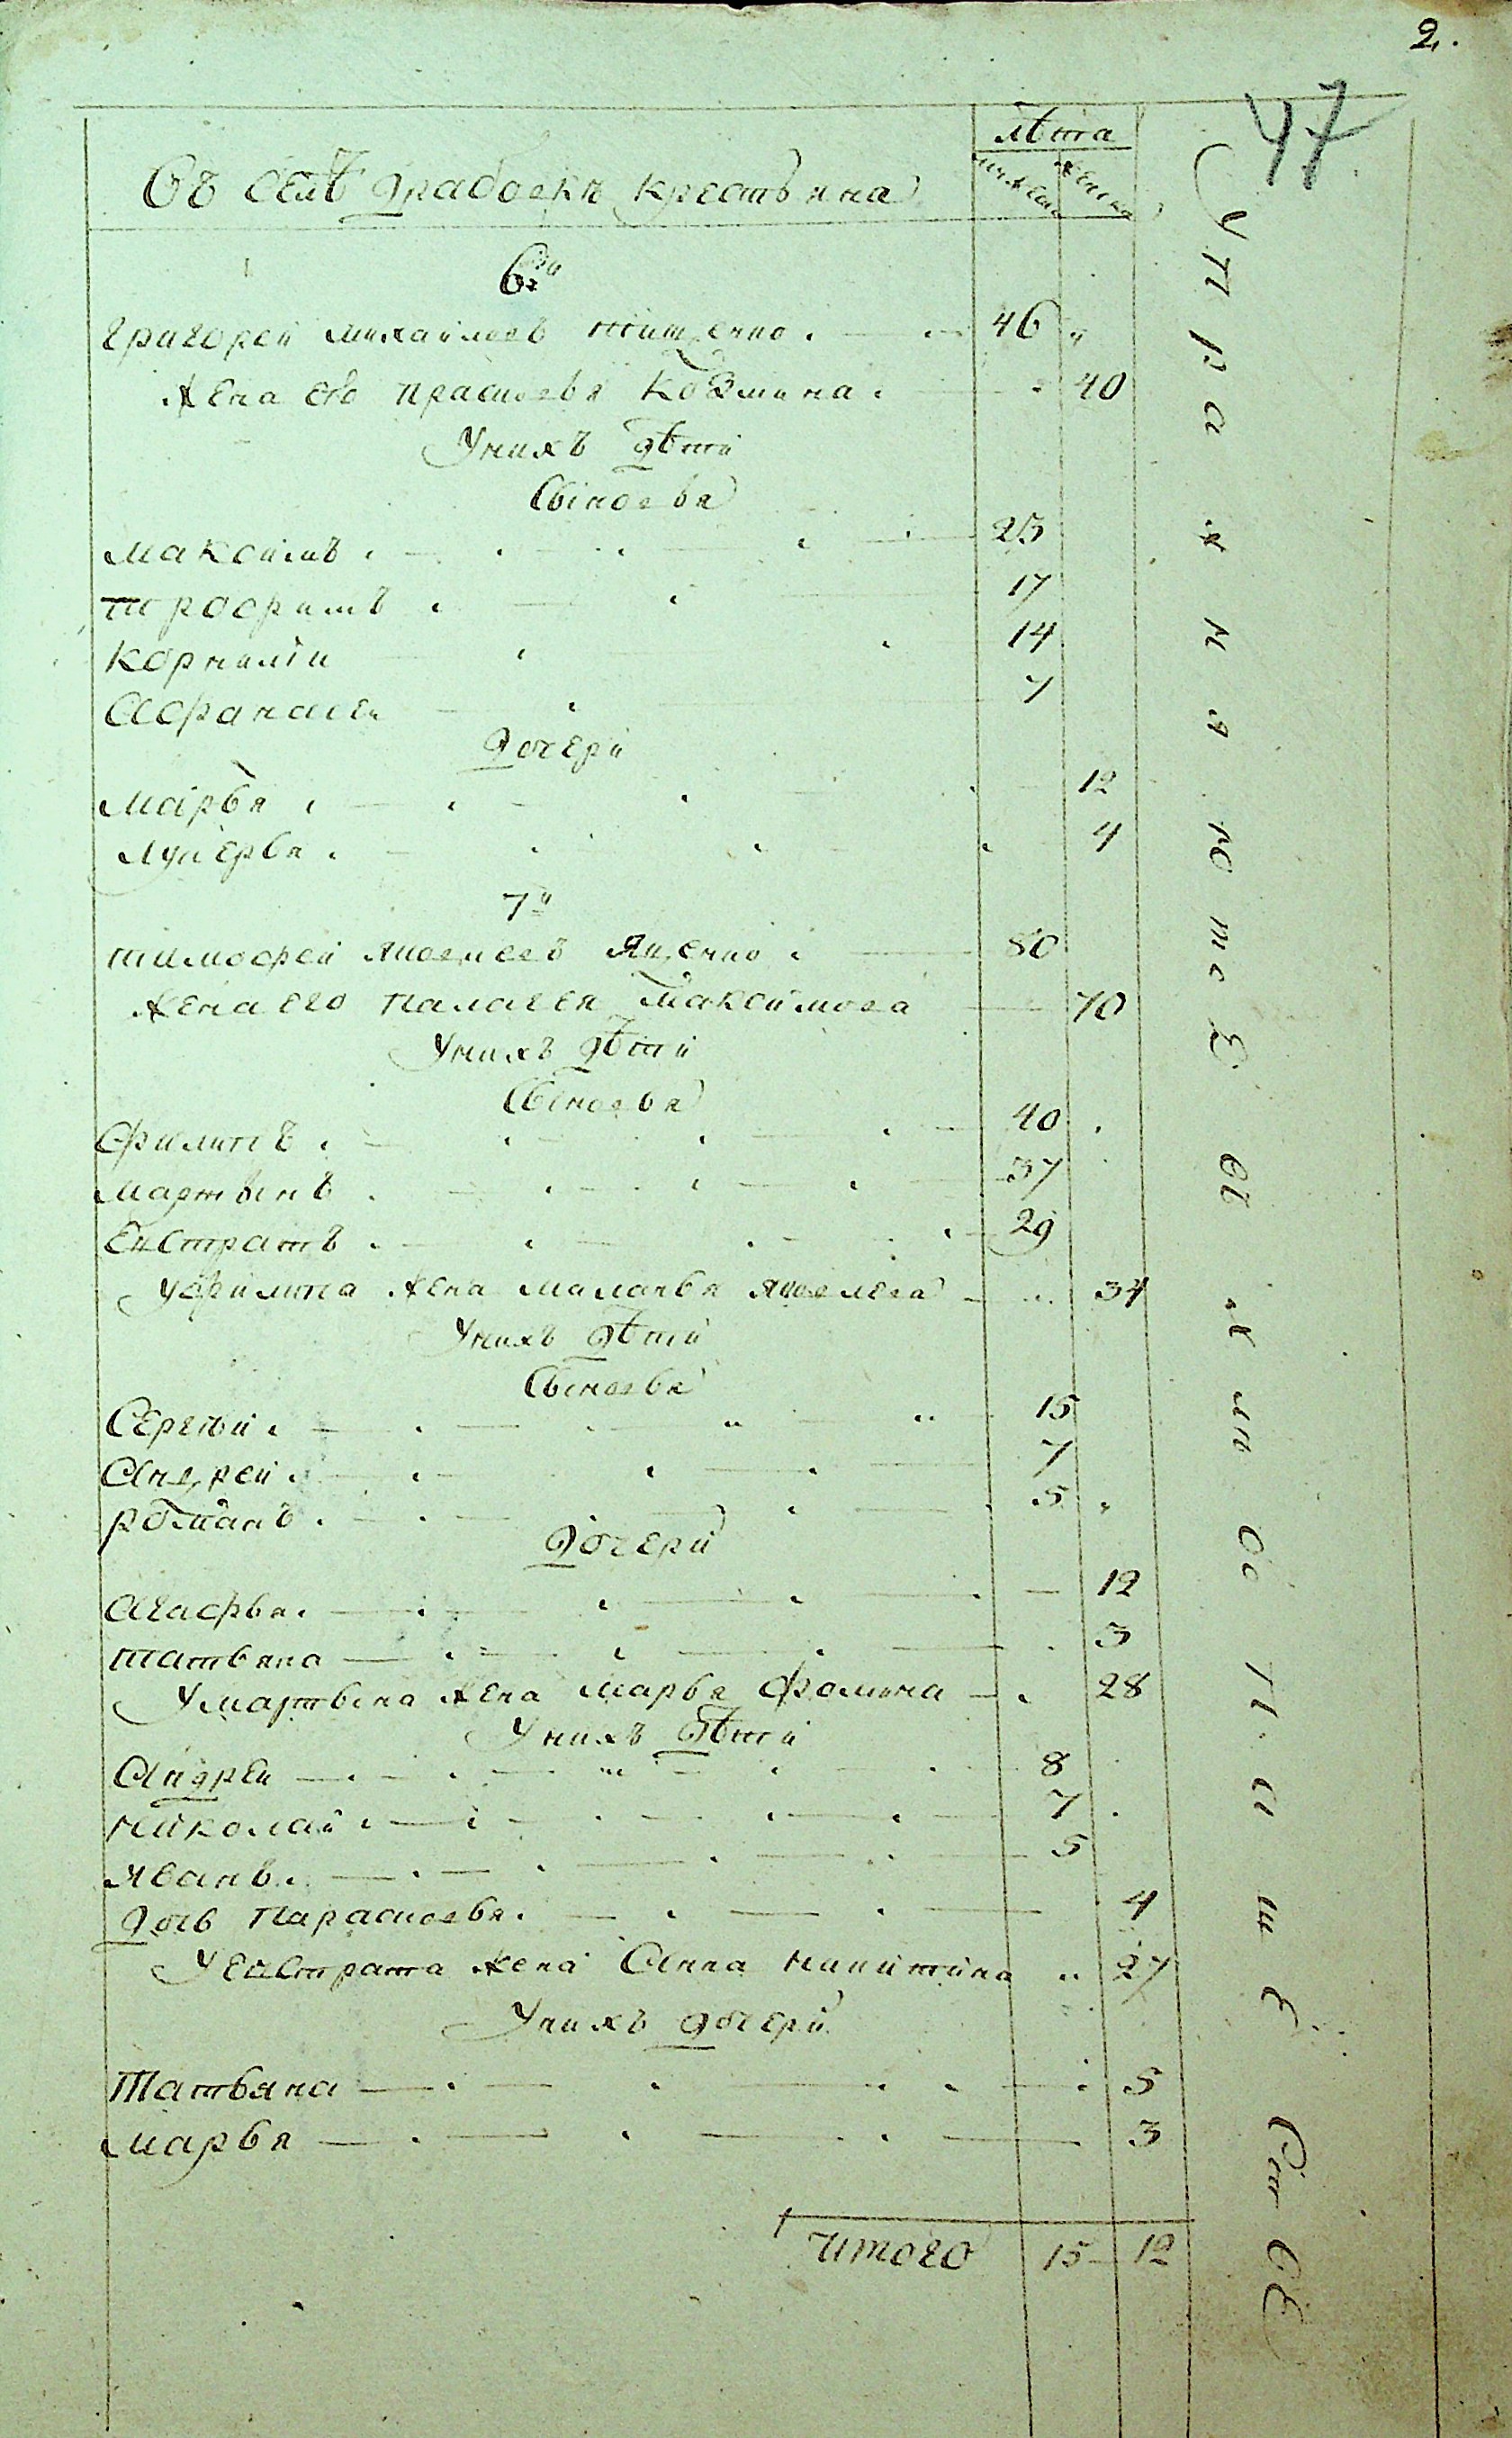 2.
47
Въ селѣ драбовкѣ крестьяне
лѣта
мужеска
женска
6й
григорей михайловъ тищенко 46
жена его прасковья козмина 40
У нихъ дѣти
Сыновья
максимъ 23
трофимъ 17
корнилiи 14
Афанасеи 7
Дочери
марья 12
лукерья 4
7й
тимофей яковлевъ яценко 80
жена его палагея максимова 70
У нихъ дѣти
Сыновья
Филипъ 40
мартынъ 37
Евстратъ 29
У филипа жена маланья яковлева 34
У нихъ дѣти
Сыновья
Сергѣй 15
Андрей 7
романъ 5
Дочери
Агафья 12
татьяна 3
У мартына жена марья фомина 28
У нихъ дѣти
Андреи 8
николай 7
Иванъ 5
Дочь парасковья 4
У Евстрата жена Анна никитина 27
У нихъ дочери
Татьяна 5
марья 3
Итого 15 12